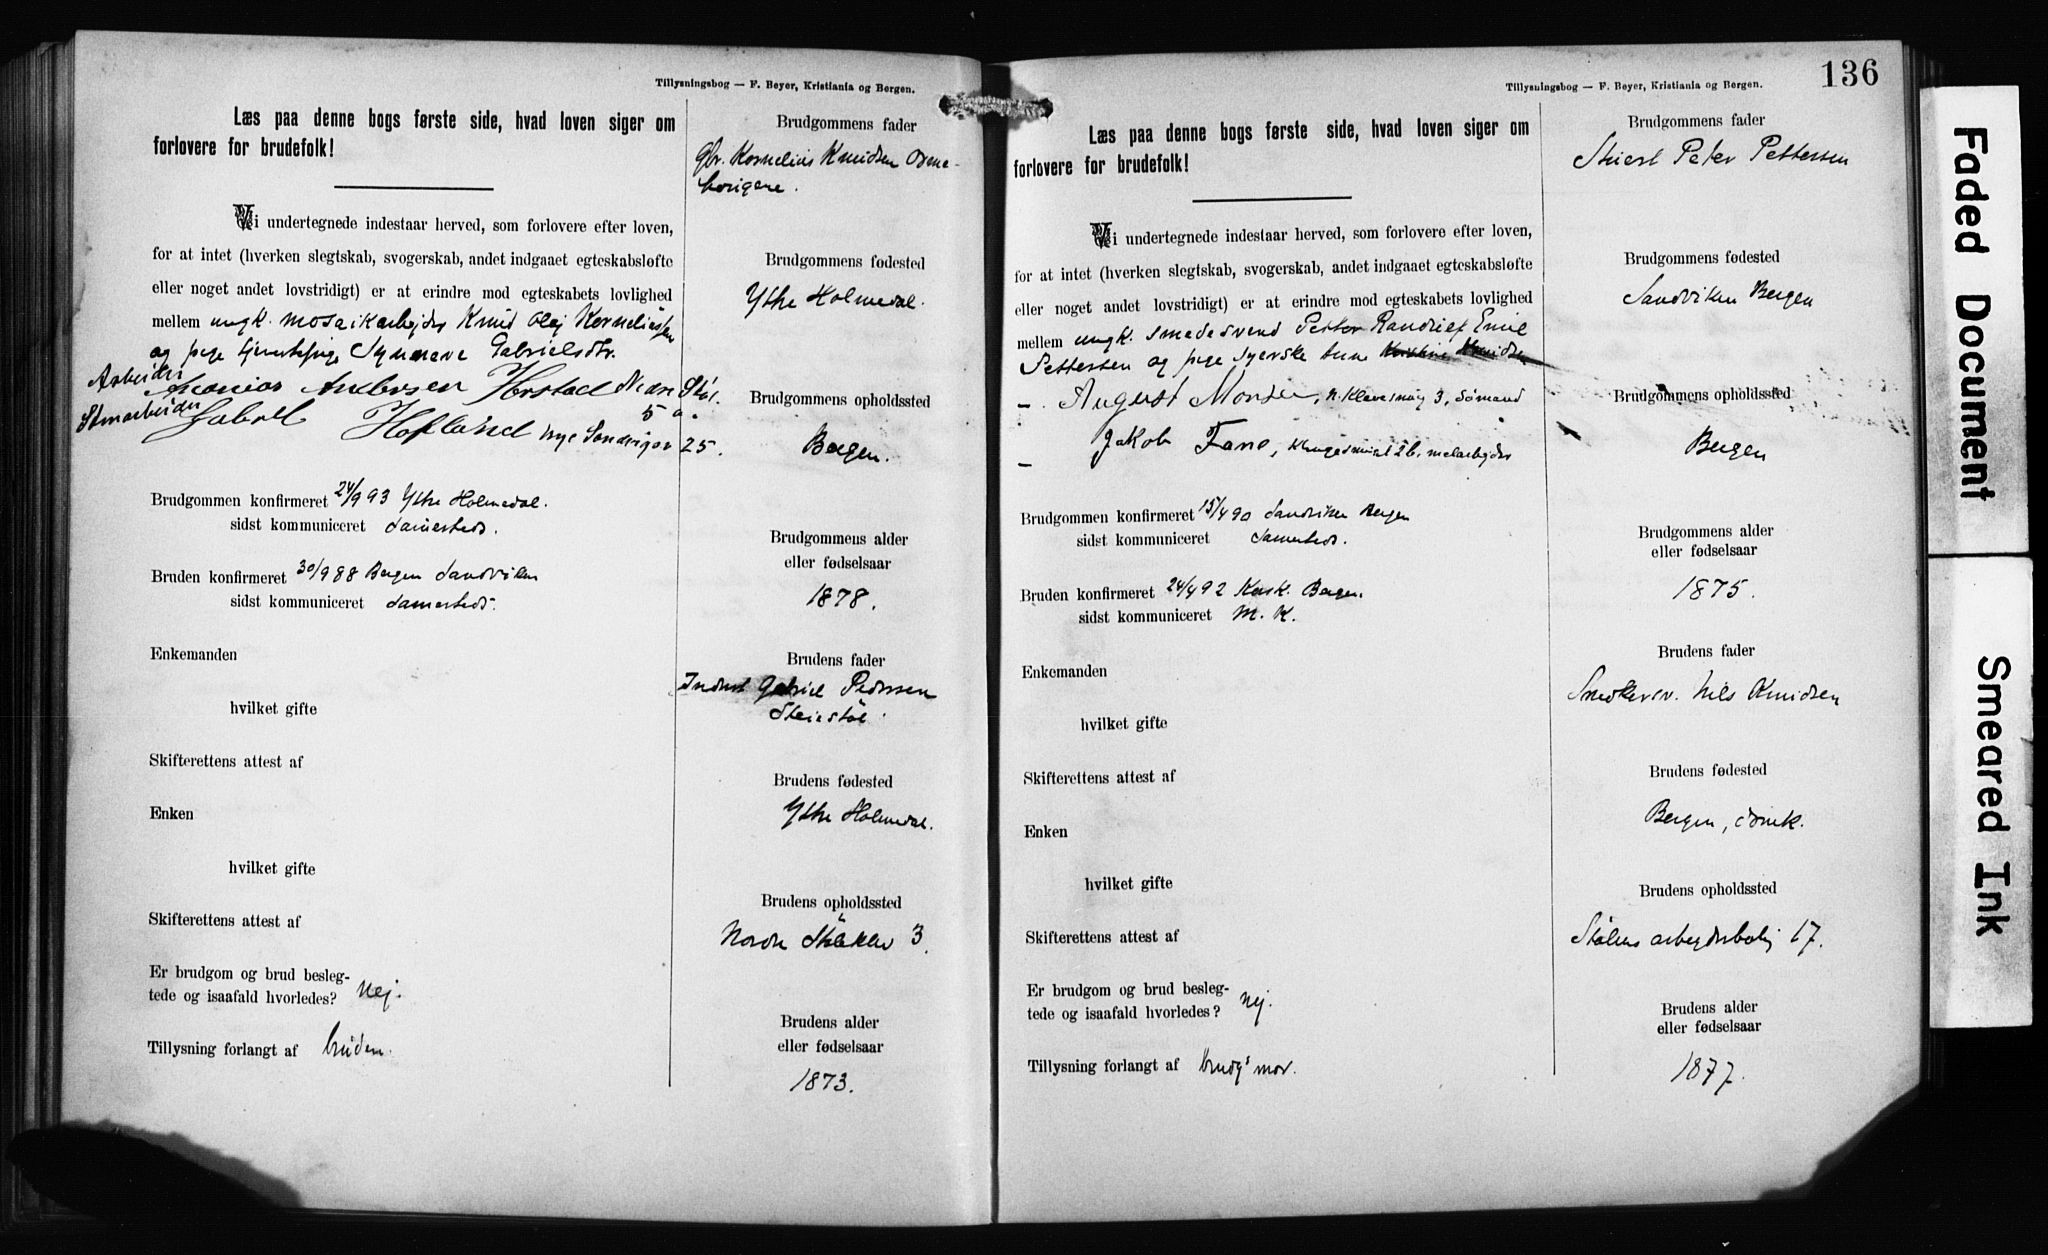 Tillysningsbog — F. Beyer, Kristiania og Bergen.
Læs paa denne bogs første side, hvad loven siger om
forlovere for brudefolk!
Vi undertegnede indestaar herved, som forlovere efter loven,
for at intet (hverken slegtskab, svogerskab, andet indgaaet egteskabsløfte
eller noget andet lovstridigt) er at erindre mod egteskabets lovlighed
mellem ungk. mosaikarbejder Knud Olej Korneliussen
og pige tjenestepige Synneve Gabrielsdtr.
Arbeider
Andersen Horstad Nedre Støl.
5 a.
Stenarbeider
Gabriel Hofland nye Sandvigsv 25.
Brudgommen konfirmeret 24/9 93 Ytre Holmedal.
sidst kommuniceret sammesteds.
Bruden konfirmeret 30/9 88 Bergen Sandviken
sidst kommuniceret sammesteds.
Enkemanden
hvilket gifte
Skifterettens attest af
Enken
hvilket gifte
Skifterettens attest af
Er brudgom og brud besleg-
tede og isaafald hvorledes? Nej.
Tillysning forlangt af bruden.
Brudgommens fader
Gbr. Kornelius Knudsen
Brudgommens fødested
Ytre Holmedal.
Brudgommens opholdssted
Bergen.
Brudgommens alder
eller fødselsaar
1878.
Brudens fader
Inderst Gabriel Pedersen
Brudens fødested
Ytre Holmedal.
Brudens opholdssted
Nordre 3.
Brudens alder
eller fødselsaar
1873.
136
Tillysningsbog — F. Beyer, Kristiania og Bergen.
Læs paa denne bogs første side, hvad loven siger om
forlovere for brudefolk!
Vi undertegnede indestaar herved, som forlovere efter loven,
for at intet (hverken slegtskab, svogerskab, andet indgaaet egteskabsløfte
eller noget andet lovstridigt) er at erindre mod egteskabets lovlighed
mellem ungk. smedesvend Petter Randulf Emil
Pettersen og pige syerske Kristine Knudsen
– August Monsen, 3, Sømand
– Jakob Fane, 26,
Brudgommen konfirmeret 13/4 90 Sandviken Bergen
sidst kommuniceret Sammesteds.
Bruden konfirmeret 24/4 92 Korsk. Bergen
sidst kommuniceret M. K.
Enkemanden
hvilket gifte
Skifterettens attest af
Enken
hvilket gifte
Skifterettens attest af
Er brudgom og brud besleg-
tede og isaafald hvorledes? nej.
Tillysning forlangt af brudg's mor.
Brudgommens fader
Peter Pettersen
Brudgommens fødested
Sandviken Bergen
Brudgommens opholdssted
Bergen
Brudgommens alder
eller fødselsaar
1875.
Brudens fader
Snedkersv. Nils Knudsen
Brudens fødested
Bergen, domk.
Brudens opholdssted
Stølens arbejderbolig 17.
Brudens alder
eller fødselsaar
1877.
Faded Document
Smeared Ink